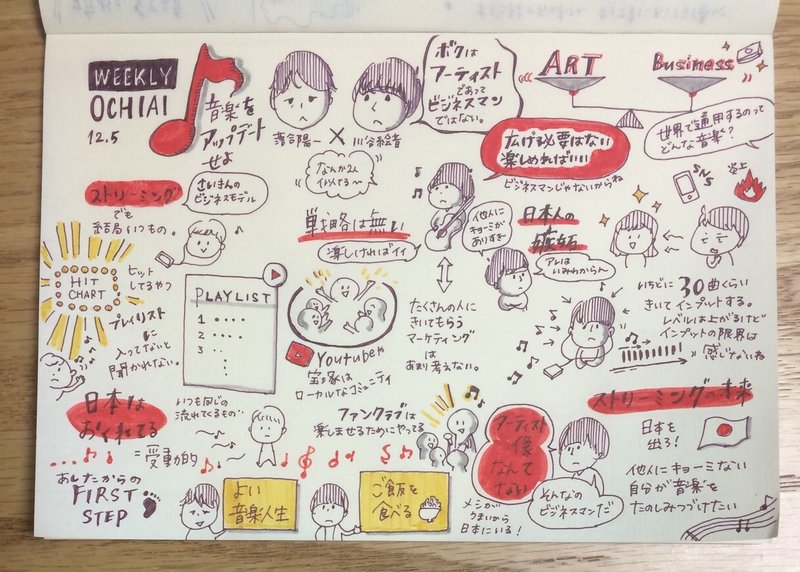 WEEKLY
OCHIAI
12.5
音楽を
アップデート
せよ
落合陽一 × 川谷絵音
なんか2人
似てる〜
ボクは
アーティスト
であって
ビジネスマン
ではない。
ART
Business
広げる必要はない
楽しめればいい
ビジネスマンじゃないからね
世界で通用するのって
どんな音楽?
SNS
炎上
ストリーミング
でも
結局いつもの。
さいきんの
ビジネスモデル
戦略は無い
楽しければイイ
他人に
キョーミが
ありすぎ
日本人の
嫉妬
アレは
いみわからん
HIT
CHART
ヒット
してるやつ
プレイリスト
に
入ってないと
聞かれない。
PLAYLIST
1
2
3
Youtubeや
宝塚は
ローカルなコミュニティ
たくさんの人に
きいてもらう
マーケティング
は
あまり考えない。
いちどに30曲くらい
きいてインプットする。
レベルは上がるけど
インプットの限界は
感じないね
日本は
おくれてる
=受動的
いつも同じの
流れてるもの…
ファンクラブは
楽しませるためにやってる
アーティスト
像
なんて
ない
そんなの
ビジネスマンだ
メシが
うまいから
日本にいる!
ストリーミングの未来
日本を
出ろ!
他人にキョーミない
自分が音楽を
たのしみつづけたい
あしたからの
FIRST
STEP
よい
音楽人生
ご飯を
食べる